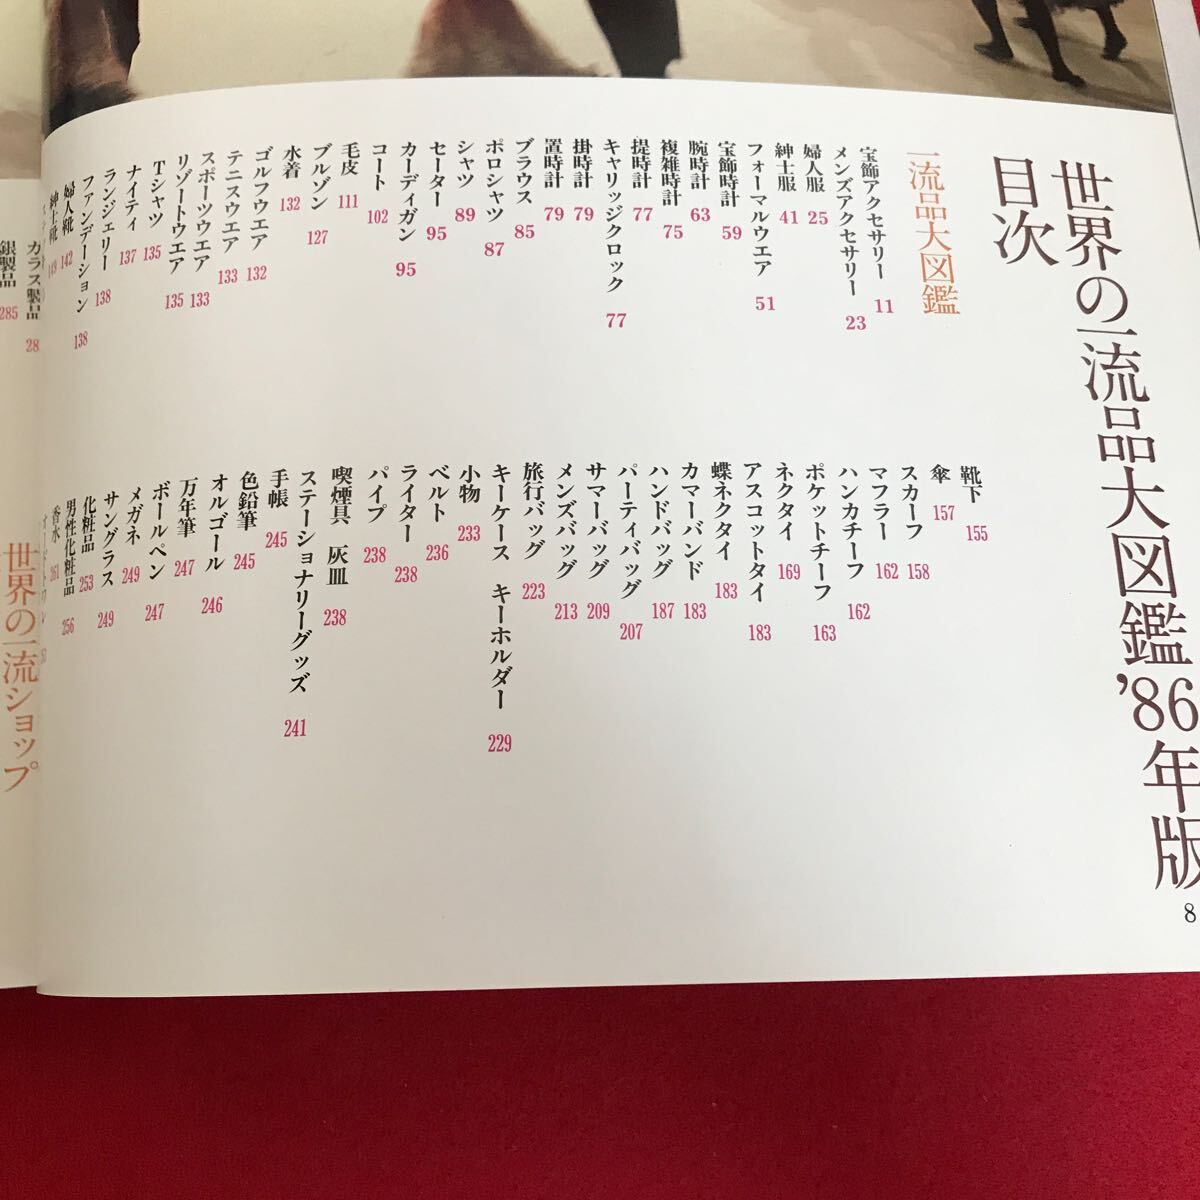 世界の一流品大図鑑'86年版
目次
一流品大図鑑
宝飾アクセサリー 11
メンズアクセサリー 23
婦人服 25
紳士服 41
フォーマルウエア 51
宝飾時計 59
腕時計 63
複雑時計 75
提時計 77
キャリッジクロック 77
掛時計 79
置時計 79
ブラウス 85
ポロシャツ 87
シャツ 89
セーター 95
カーディガン 95
コート 102
毛皮 111
ブルゾン 127
水着 132
ゴルフウエア 132
テニスウエア 133
スポーツウエア 133
リゾートウエア 135
Tシャツ 135
ナイティ 137
ランジェリー 138
ファンデーション 138
婦人靴 142
紳士靴 149
靴下 155
傘 157
スカーフ 158
マフラー 162
ハンカチーフ 162
ポケットチーフ 163
ネクタイ 169
アスコットタイ 183
蝶ネクタイ 183
カマーバンド 183
ハンドバッグ 187
パーティバッグ 207
サマーバッグ 209
メンズバッグ 213
旅行バッグ 223
キーケース キーホルダー 229
小物 233
ベルト 236
ライター 238
パイプ 238
喫煙具 灰皿 238
ステーショナリーグッズ 241
手帳 245
色鉛筆 245
オルゴール 246
万年筆 247
ボールペン 247
メガネ 249
サングラス 249
化粧品 253
男性化粧品 256
香水 261
ガラス製品 28
銀製品 285
世界の一流ショップ
8